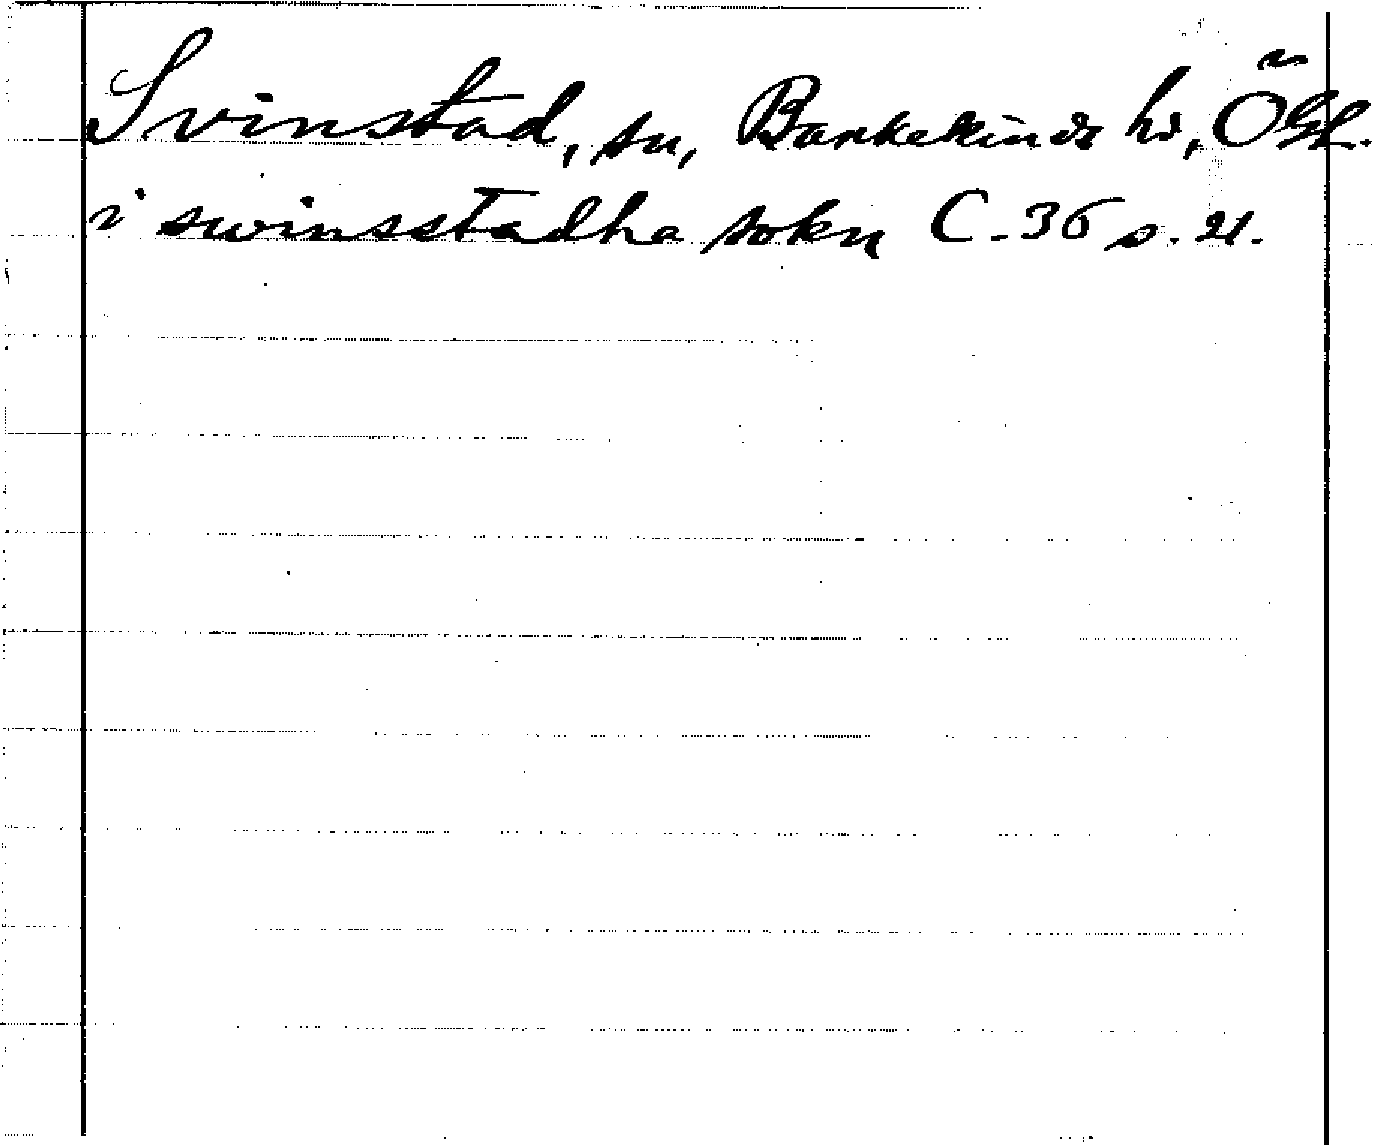 Svinstad, sn, Bankekinds hd, Ögl.
i swinsstadha sokn C. 36 s. 21.